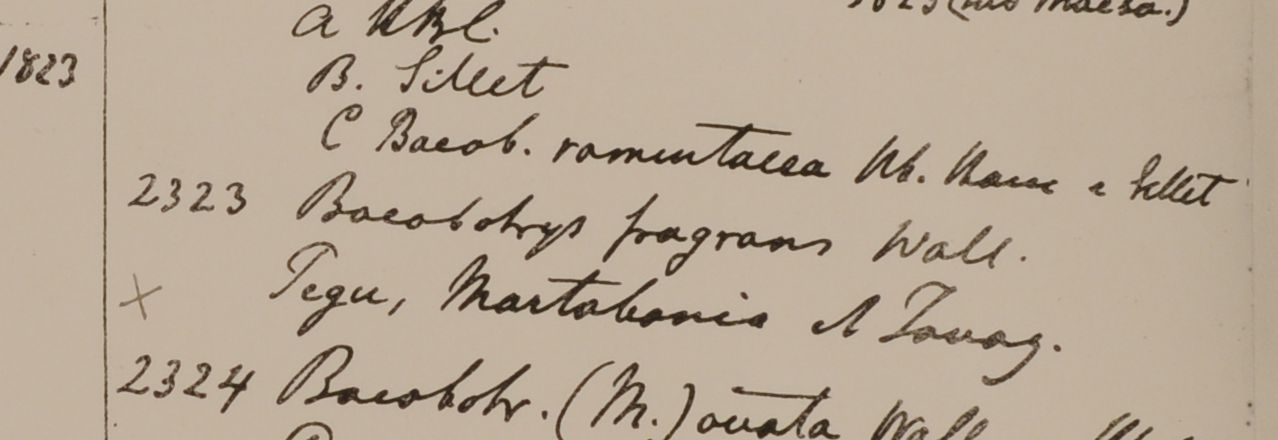 1823 (sub Maesa.)
a HBC.
1823
B. Sillet
C Baeob. ramentacea Rb. Ham e Sillet
2323 Baeobotrys fragrans Wall.
x Pegu, Martabania et Tavoy.
2324 Baeobotr. (M.) ovata Wall